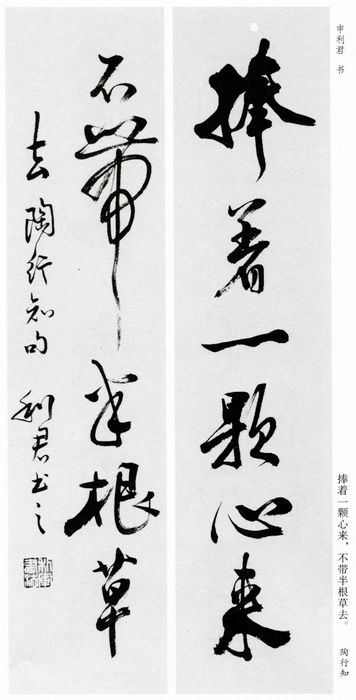 申利君 书
捧着一颗心来
不带半根草
去 陶行知句 利君书之
捧着一颗心来、不带半根草去。
陶行知